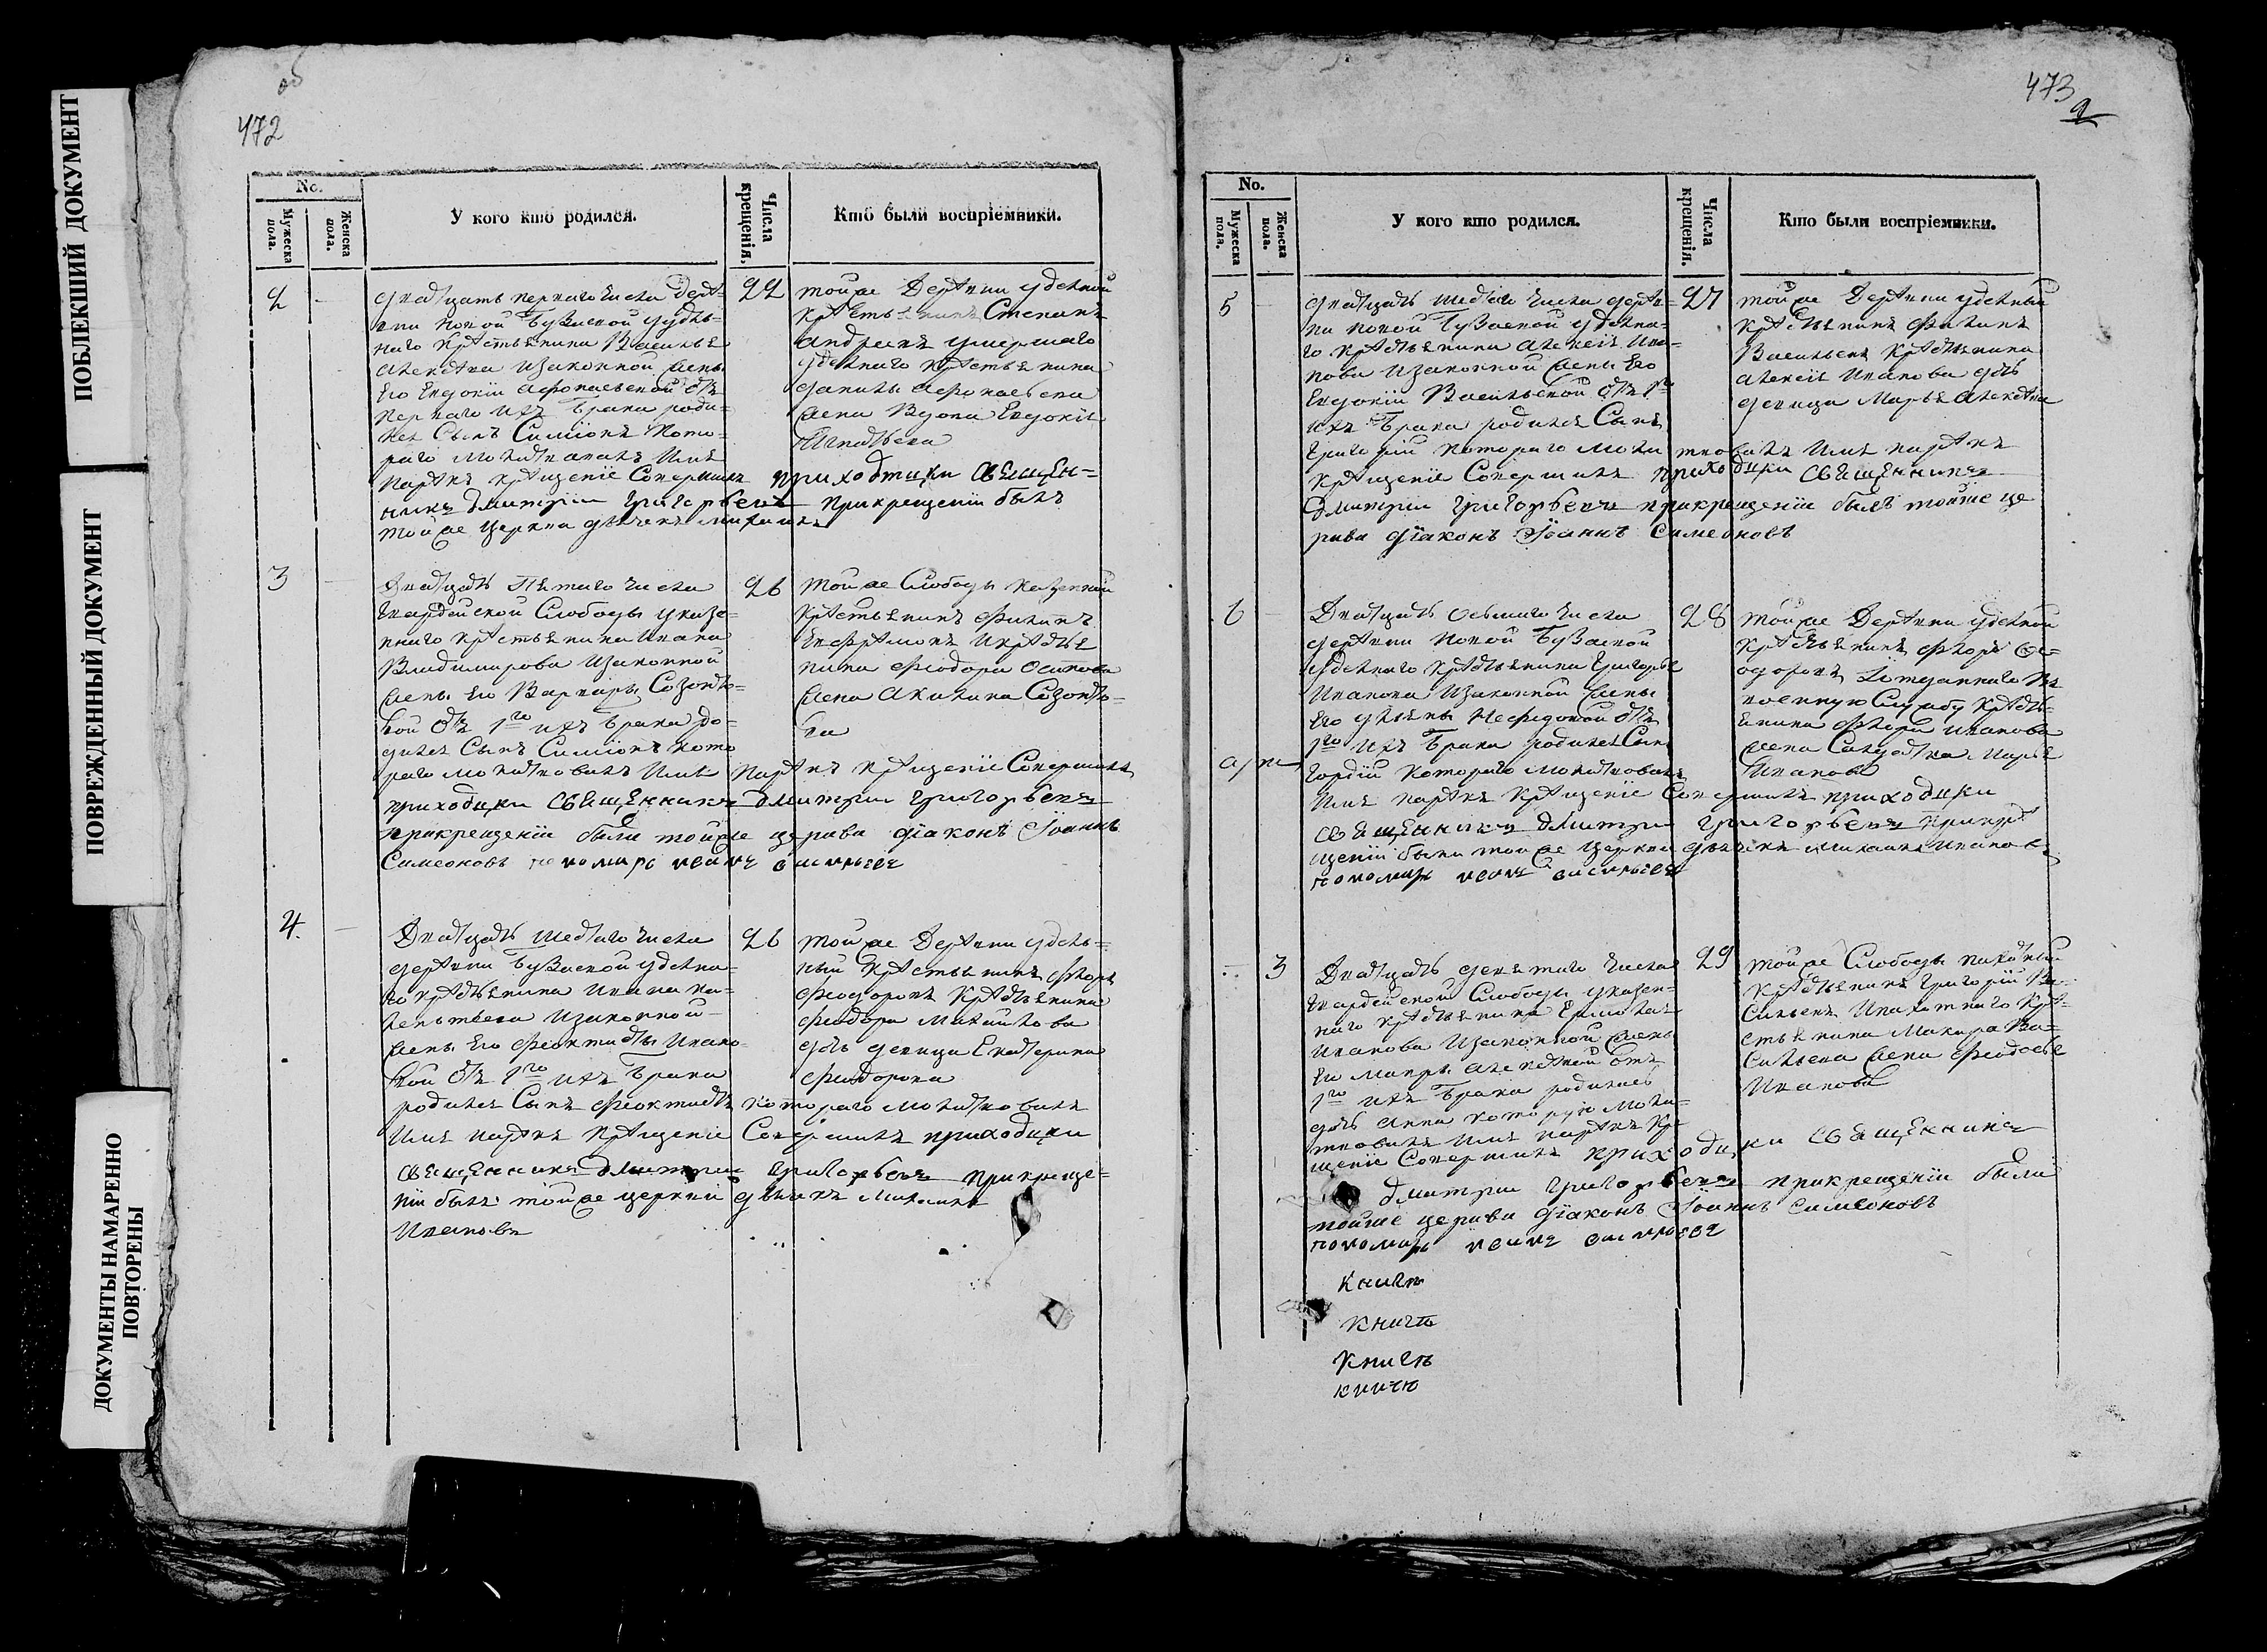 ПОБЛЕКШИЙ ДОКУМЕНТ
ПОВРЕЖДЕННЫЙ ДОКУМЕНТ
ДОКУМЕНТЫ НАМАРЕННО
ПОВТОРЕНЫ
об
472
No.
Мужеска пола.
Женска пола.
У кого кто родился.
Числа крещенія.
Кто были воспріемники.
2
22
дватцать перваго числа дерѣ=
вни Новой удѣль=
наго крестьянина Василья
Алексѣева изаконной жены
его Евдокіи Афонасьевой отъ
перваго ихъ брака роди=
лся Сынъ Симіонъ кото=
раго молитвовалъ имя
нарекъ крещеніе совершилъ приходцки свящѣн=
никъ дмитріи григорьевъ прикрещеніи былъ
тойже церкви дьячекъ михаилъ
тойже деревни удѣльной
крестьянинъ Степанъ
Андреевъ умершаго
удѣльнаго крестьянина
данилы Афонасьева
жена вдова Евдокія
Игнатьева
3
26
Дватцать пятаго числа
Гвардейской Слободы указе=
ннаго крестьянина Ивана
Владимирова изаконной
жены его Варвары Созонть=
вой отъ 1го ихъ брака ро=
дился Сынъ Симіонъ кото
раго молитвовалъ имя нарекъ крещеніе совершилъ
приходцки священникъ дмитріи григорьевъ
прикрещеніи были тойже церкви діаконъ Іоаннъ
Симеоновъ пономарь
тойже Слободы
крестьянинъ Филипъ
Ефремовъ икрестья
нина Фиодора Осипова
жена Акилина Созонть=
ва
4.
26
Дватцать шестаго числа
деревни удѣльна=
го крестьянина Ивана
изаконной
жены его Феоктисты Ивано
вой отъ 1го ихъ брака
родился Сынъ Феоктистъ котораго молитвовалъ
имя нарекъ крещеніе совершилъ приходцки
священникъ дмитріи григорьевъ прикреще=
ніи былъ тойже церкви дьячекъ михаилъ
Ивановъ
тойже деревни удѣль=
ный крестьянинъ Флоръ
Фиодоровъ крестьянина
Фиодора Михайлова
дочь девица Екатерина
Фиодорова
473
No.
Мужеска пола.
Женска пола.
У кого кто родился.
Числа крещенія.
Кто были воспріемники.
5
27
дватцать шестаго числа дерев=
ни Новой удѣльна=
го крестьянина Алексѣя Ива=
нова изаконной жены его
Евдокіи Васильевой отъ 1го
ихъ брака родился Сынъ
Григорій котораго молитвовалъ имя нарекъ
крещеніе совершилъ приходцки священникъ
дмитріи григорьевъ прикрещеніи былъ тойже це
ркви діаконъ Іоаннъ Симеоновъ
тойже деревни удѣльный
крестьянинъ Филипъ
Васильевъ крестьянина
Алексѣя Иванова дочь
девица Марья Алексѣева
6
28
Дватцать осьмаго числа
деревни Новой
удѣльнаго крестьянина Григорья
Иванова изаконной жены
его Нефедовой отъ
1го ихъ брака родился Сынъ
Гордій котораго молитвовалъ
имя нарекъ крещеніе совершилъ приходцки
священникъ дмитріи григорьевъ прикре
щеніи были тойже церкви дьячекъ михаилъ Ивановъ
пономарь
тойже деревни удѣльной
крестьянинъ Флоръ Фи=
одоровъ въ
военную службу крестья=
янина Флора Иванова
жена Салдатка Марья
Иванова
3
29
Дватцать девятаго числа
Гвардейской Слободы указен=
наго крестьянина Ермолая
Иванова изаконной жены
его Мавры Алексѣевой отъ
1го ихъ брака родилась
дочь Анна которую моли=
твовалъ имя нарекъ кре
щеніе совершилъ приходцки священникъ
дмитріи григорьевъ прикрещеніи были
тойже церкви діаконъ Іоаннъ Симеоновъ
пономарь
тойже Слободы
крестьянинъ Григорій Ва
сильевъ кре=
стьянина Макара Ва=
сильева жена Феодосья
Иванова